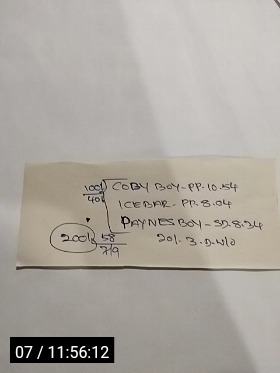 100/ COBY BOY-PP.10.54
40/ ICEBAR-PP.8.04
PAYNESBOY-SD.8.24
200/ 58 20/. 3.D.W/O
719
07 / 11:56:12